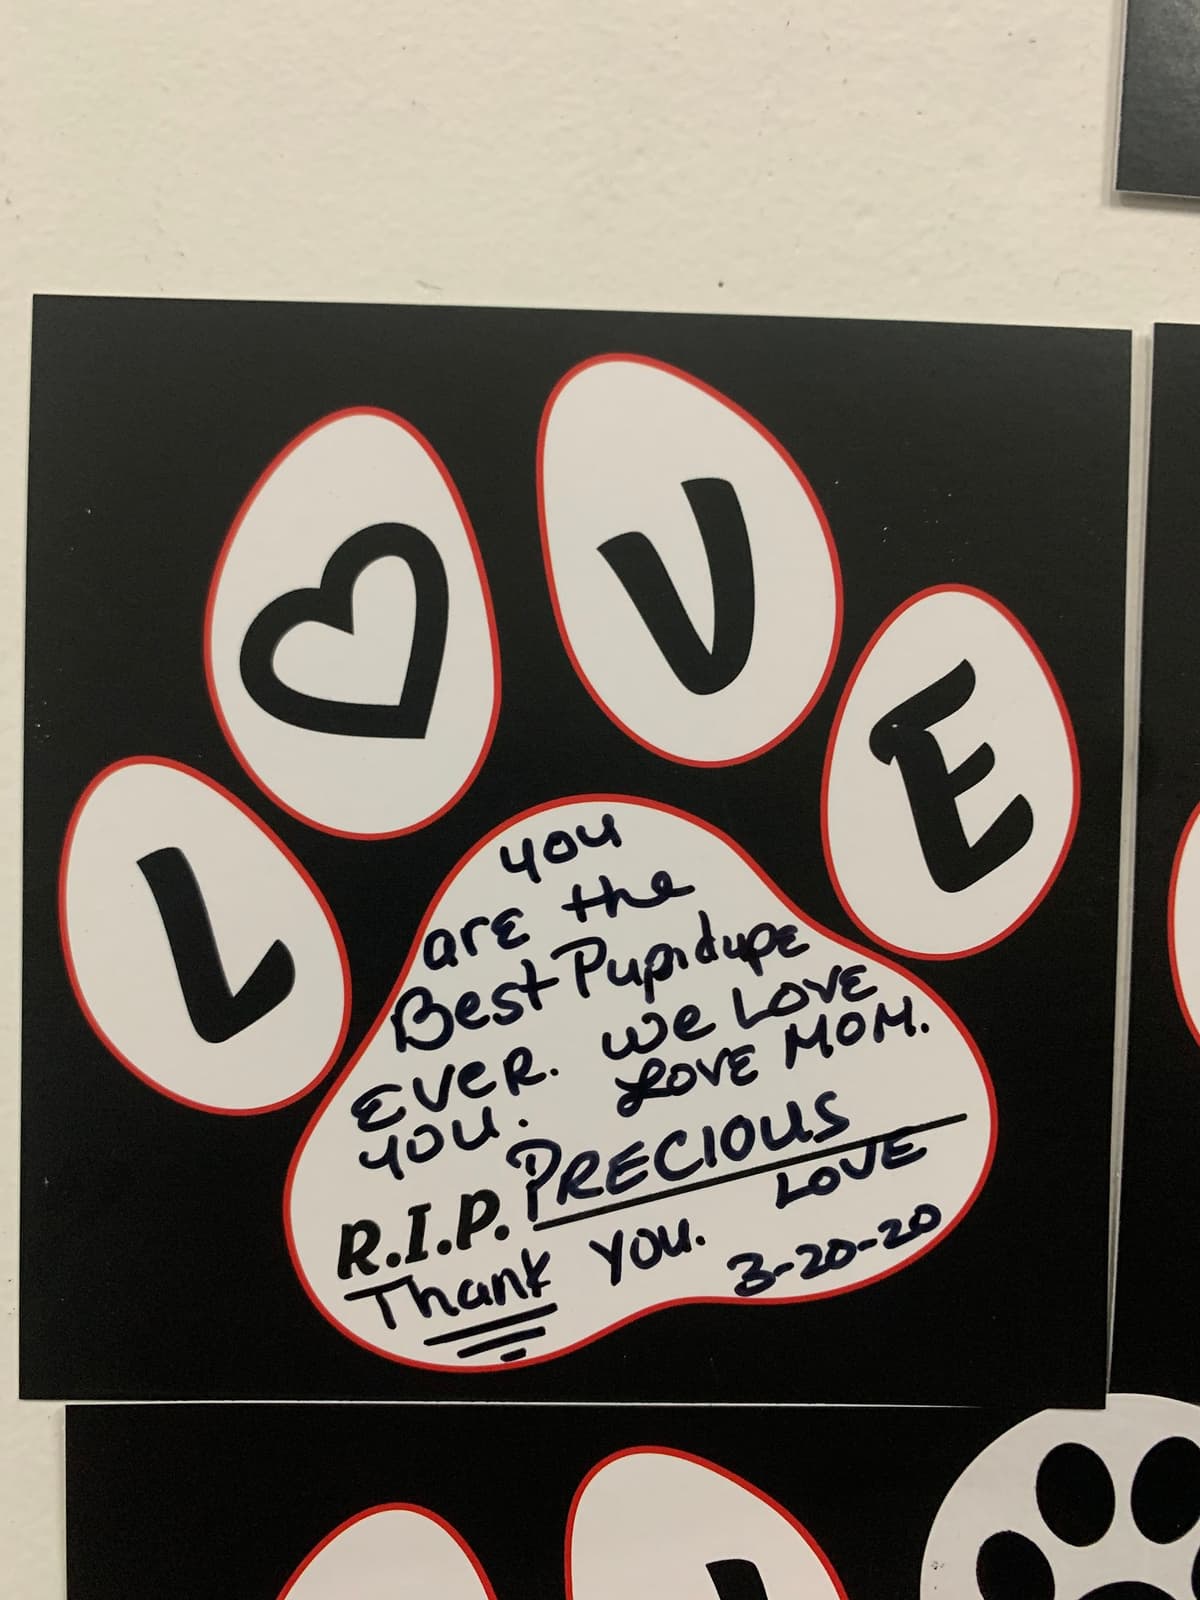 L ♡ V E
you
are the
Best Pupidupe
EVER. we LOVE
you. LOVE MOM.
R.I.P. PRECIOUS
Thank you. LOVE
3-20-20